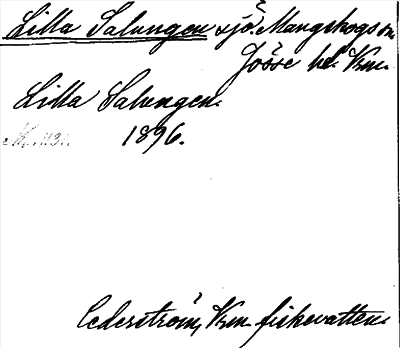 Lilla Salungen sjö. Mangskogs sn
Jösse hd. Vrm.
Lilla Salungen.
1896.
Cederström, Vrm. fiskevatten.